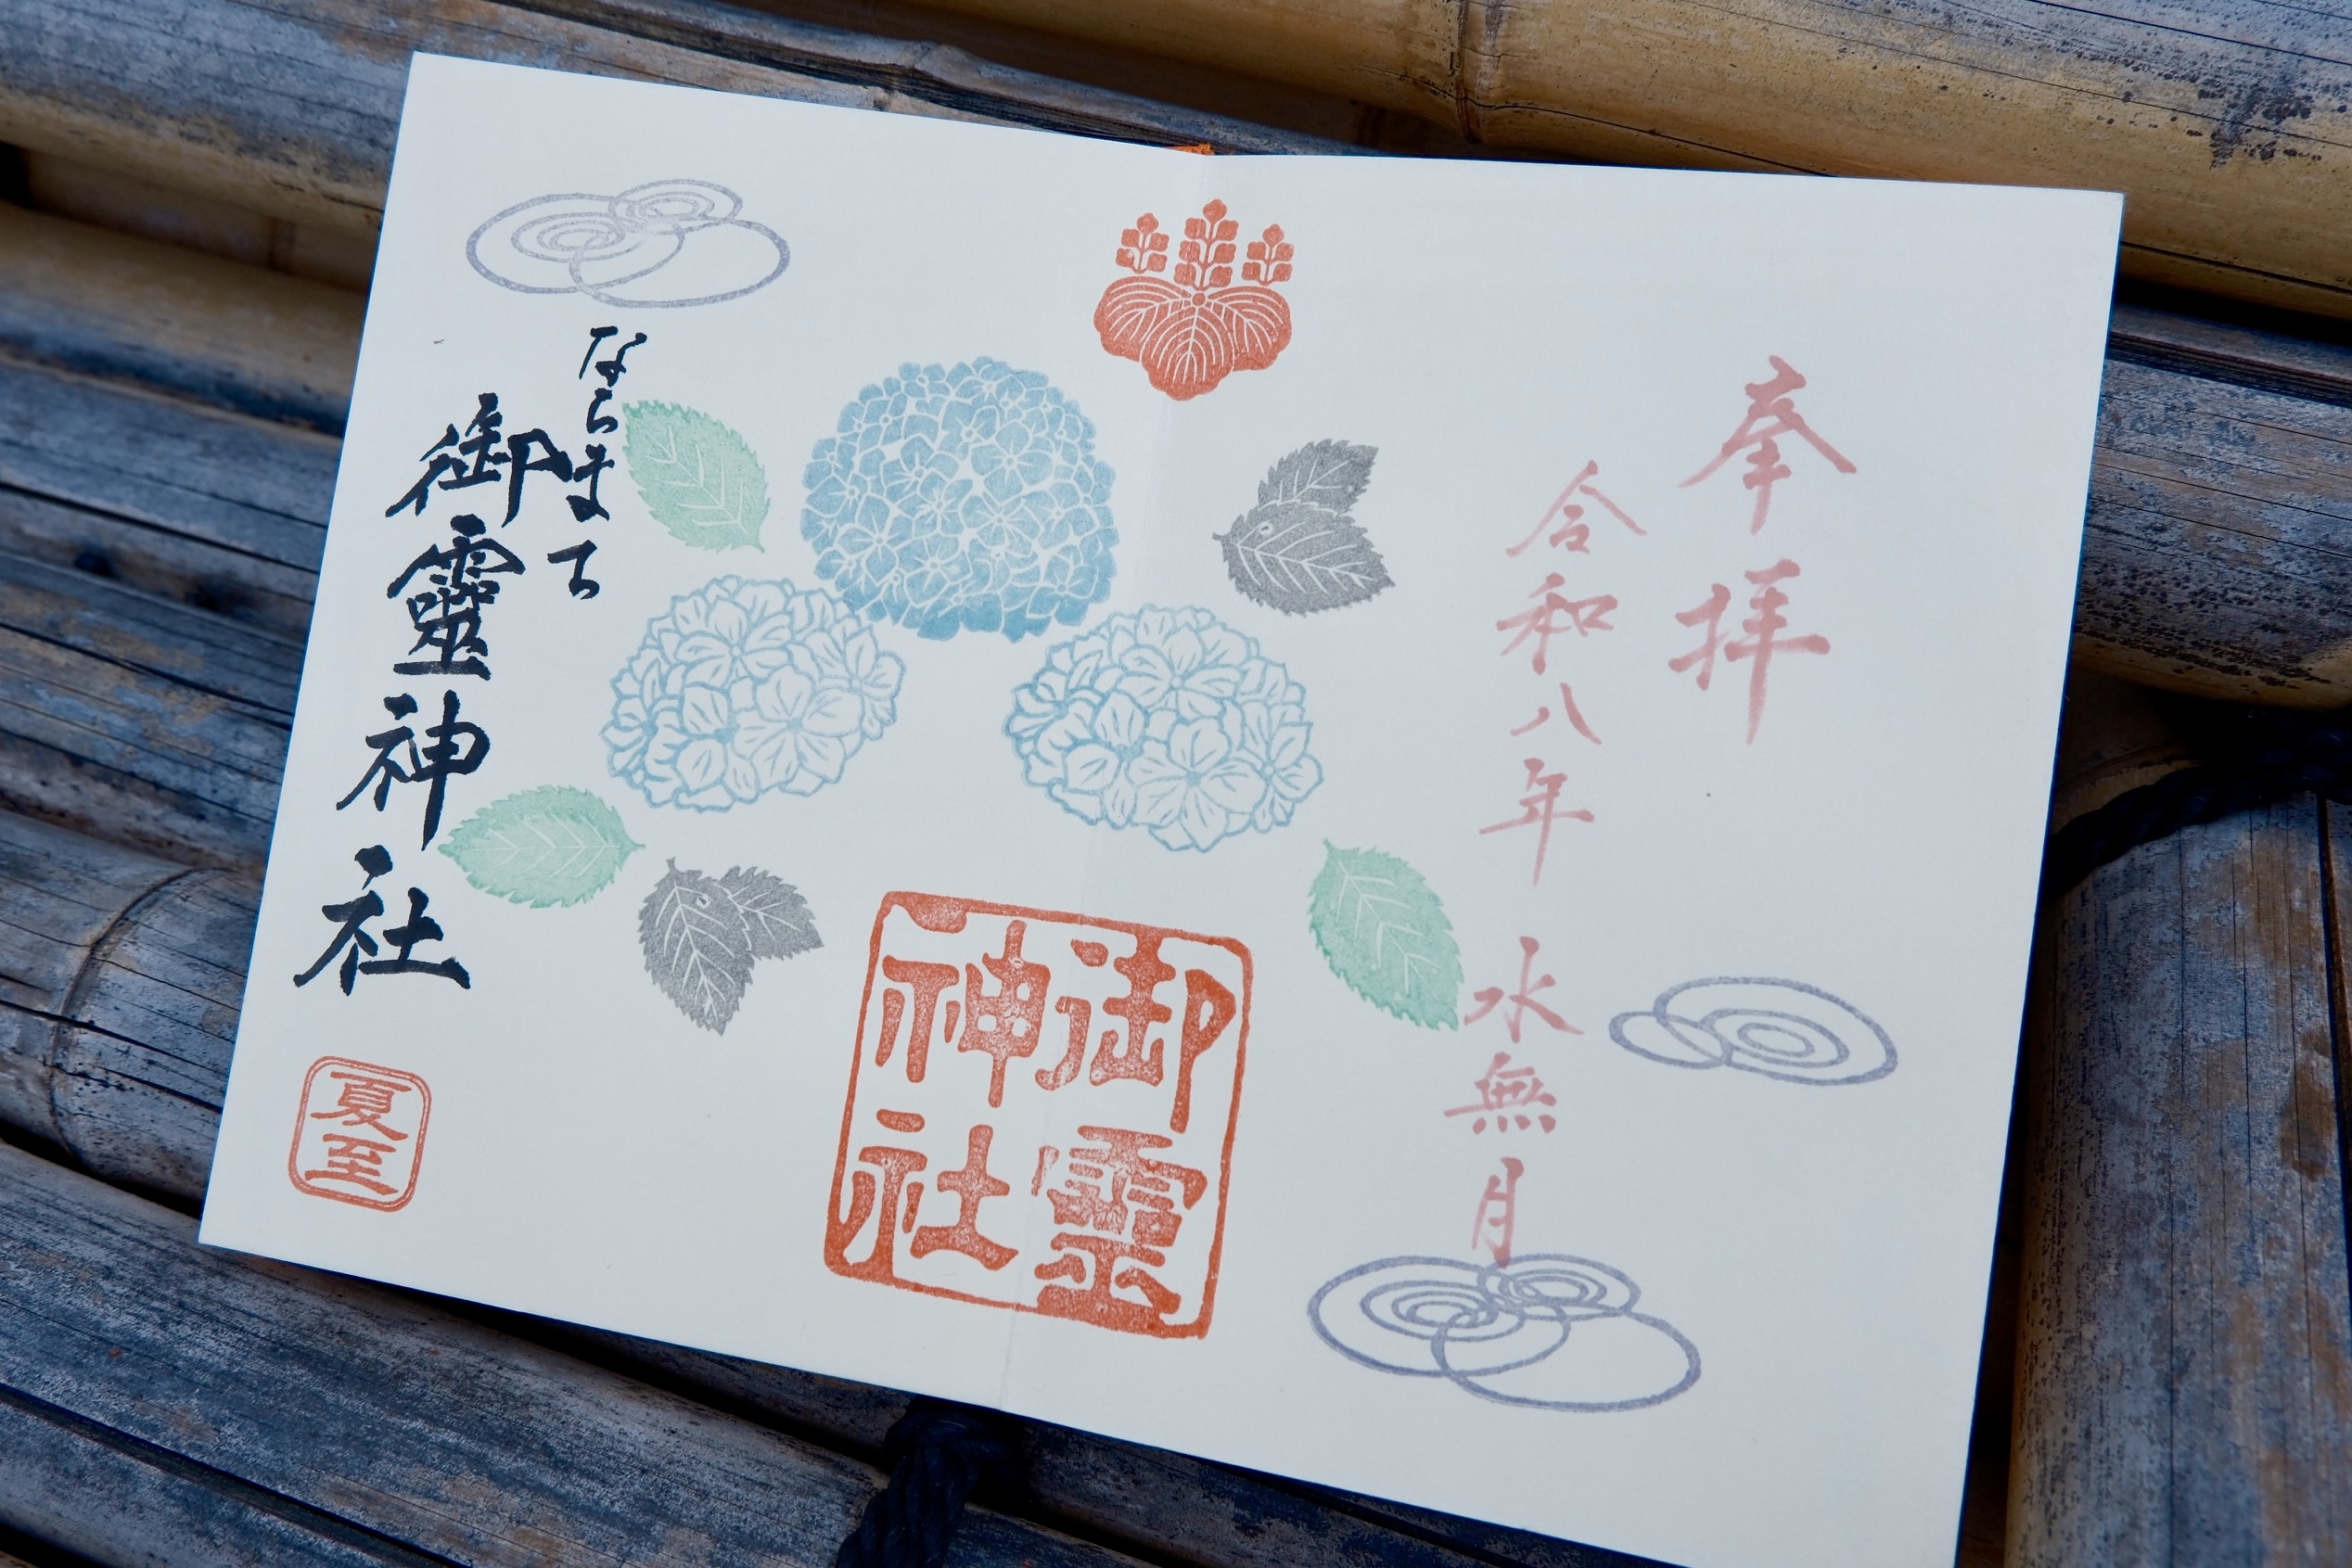 奉拝
令和八年 水無月
御靈
神社
ならまち
御靈神社
夏至